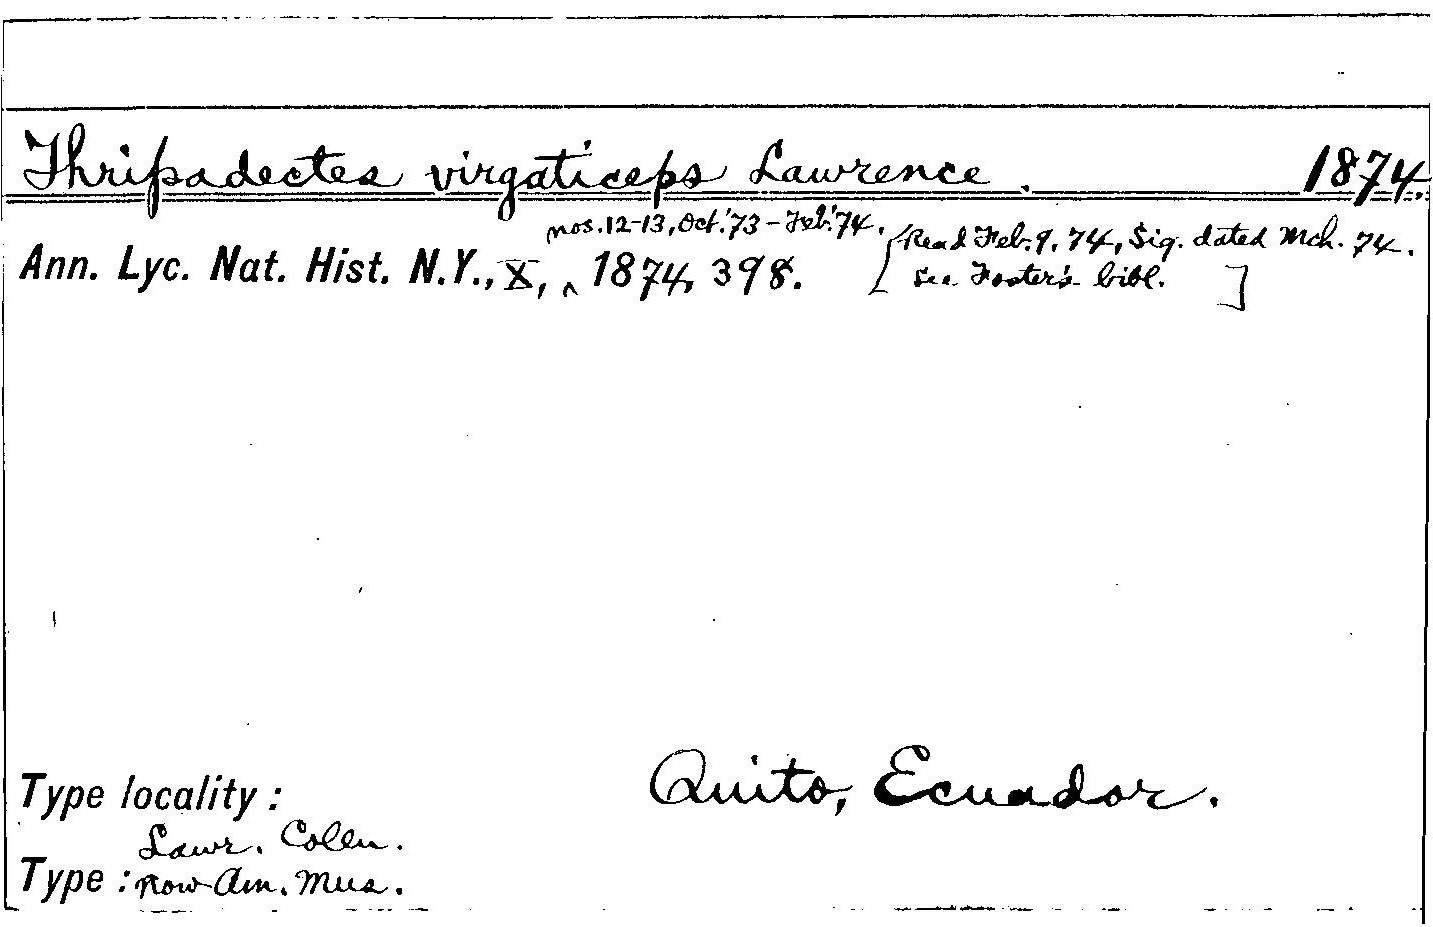 Thripadectes virgaticeps Lawrence. 1874.
nos. 12-13, Oct. '73 - Feb. '74.
Ann. Lyc. Nat. Hist. N.Y., X, ^ 1874, 398. [Read Feb. 9, 74, Sig. dated Mch. 74.
see Foster's bibl. ]
Type locality : Quito, Ecuador.
Lawr. Colln.
Type : now Am. Mus.